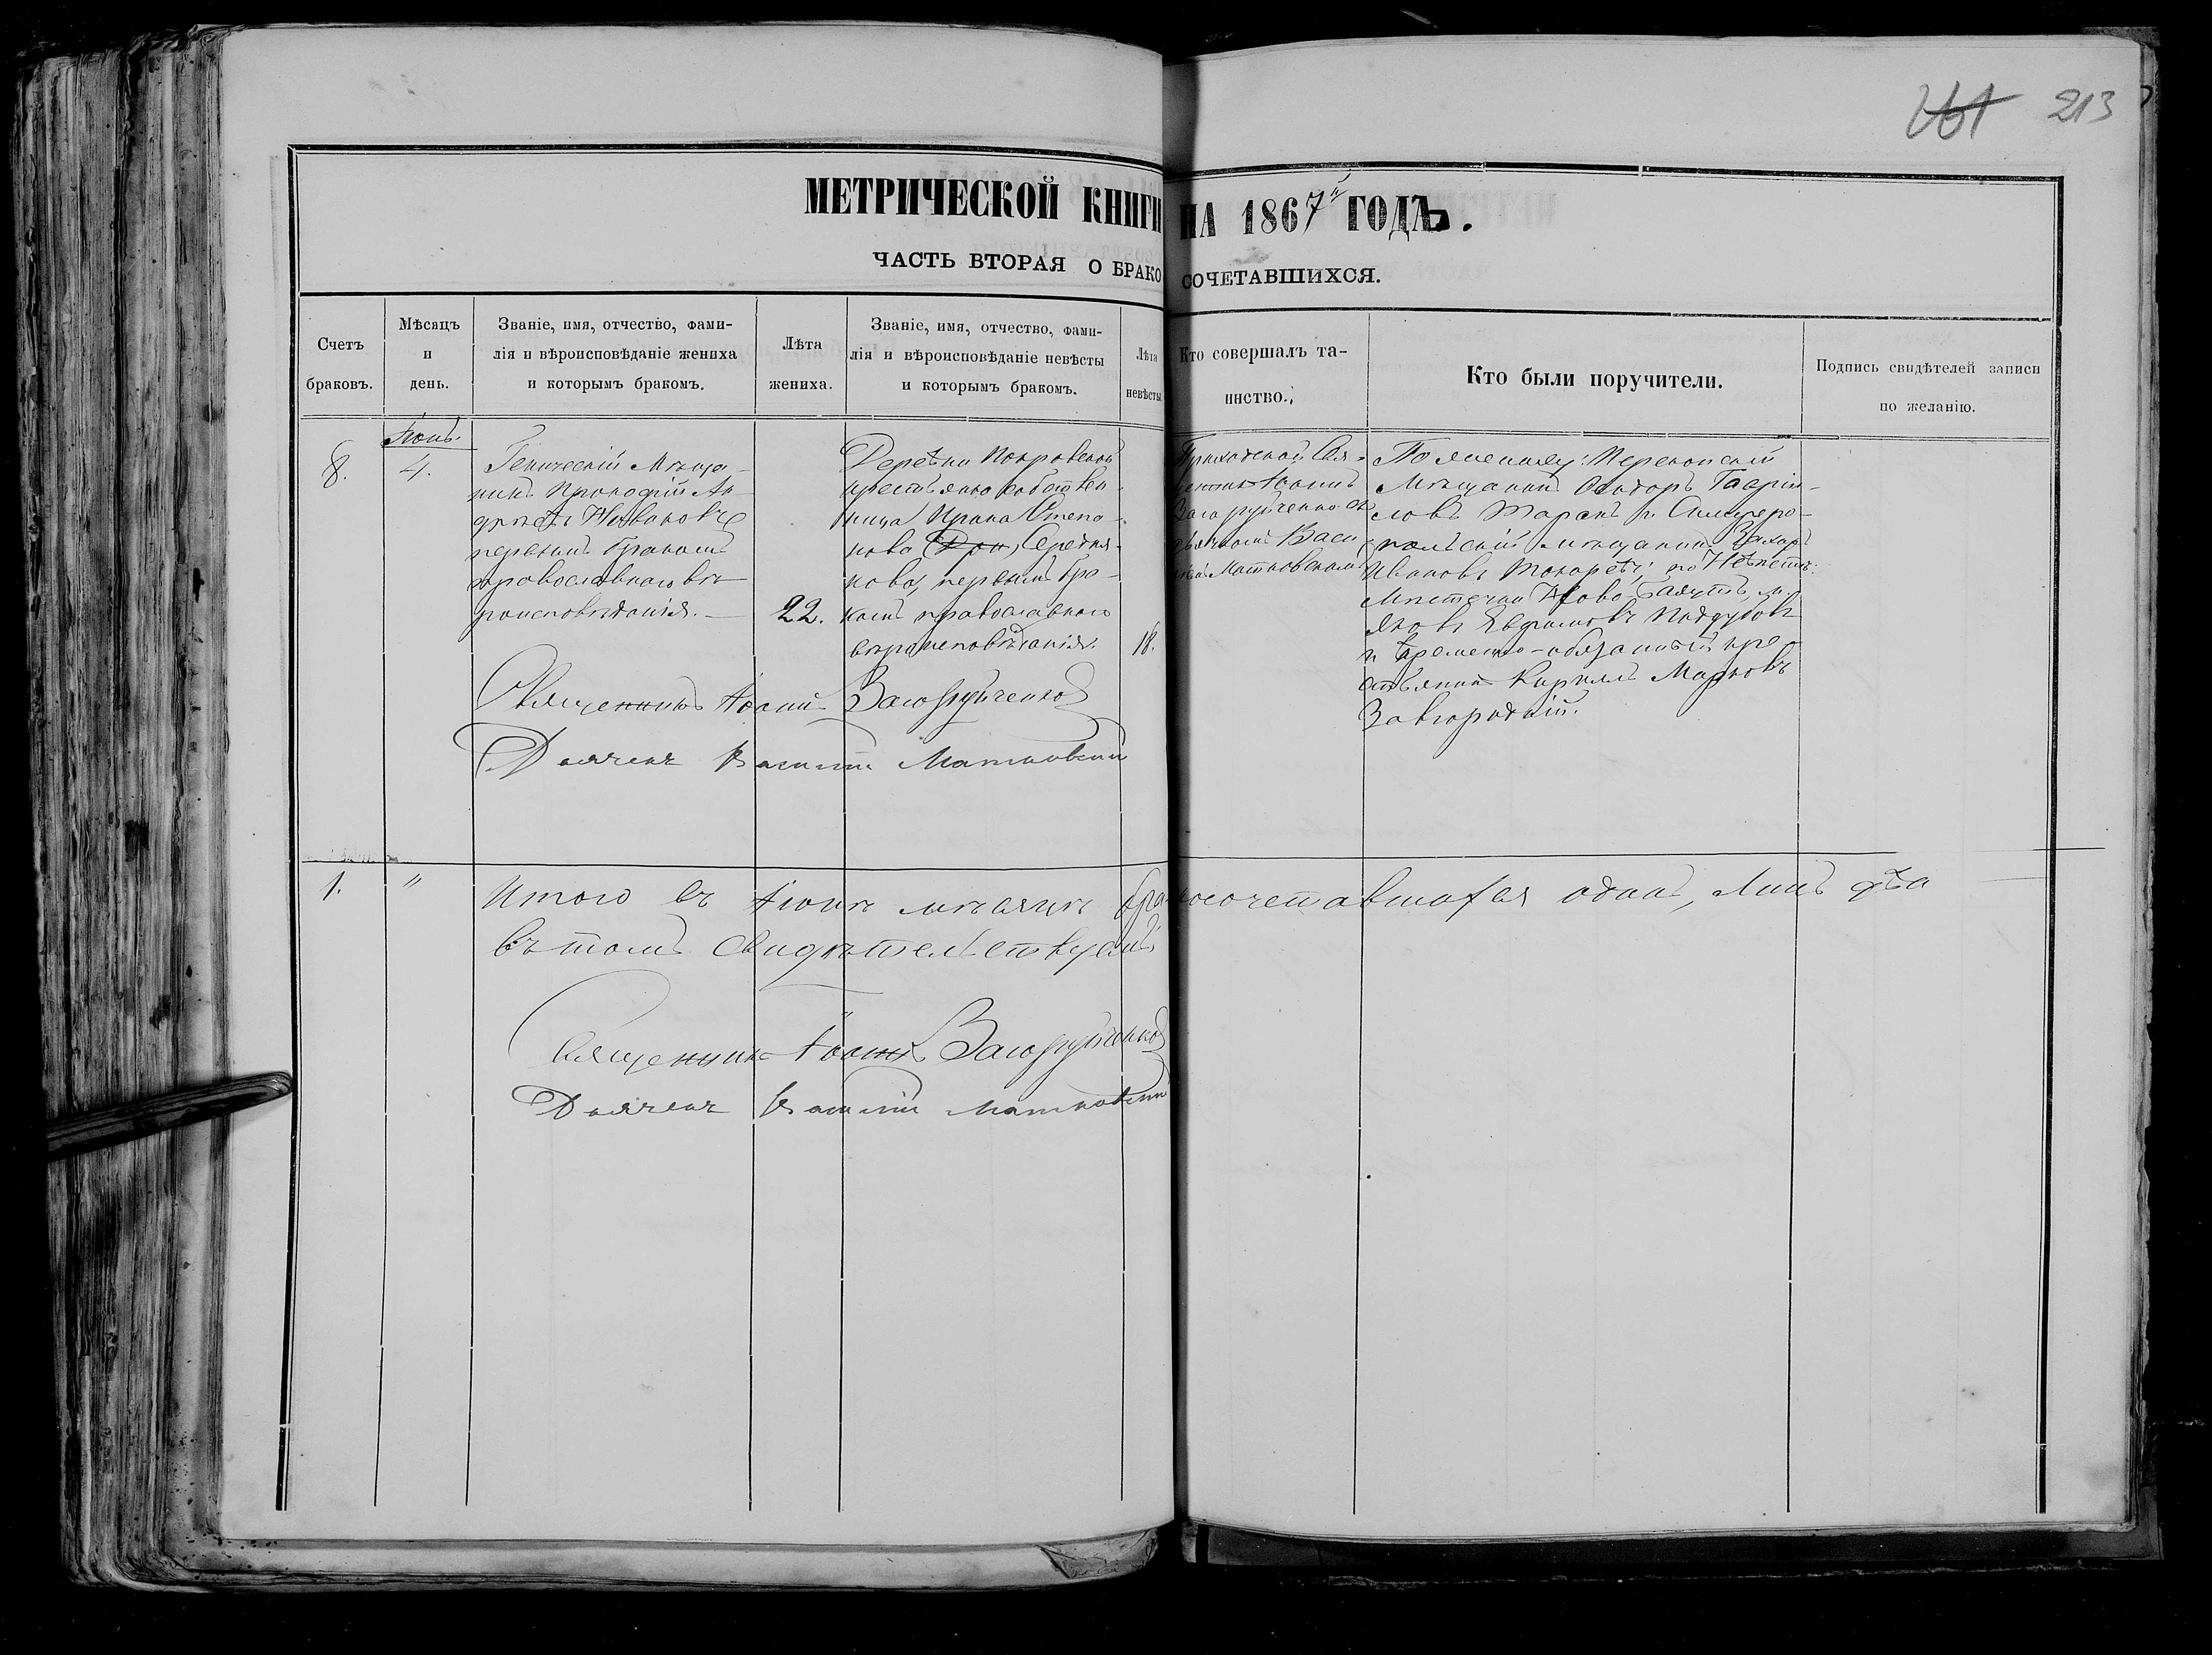 213
МЕТРИЧЕСКОЙ КНИГИ НА 1867й ГОДЪ.
ЧАСТЬ ВТОРАЯ О БРАКОСОЧЕТАВШИХСЯ.
Счетъ
браковъ.
Мѣсяцъ
и
день.
Званіе, имя, отчество, фами-
лія и вѣроисповѣданіе жениха
и которымъ бракомъ.
Лѣта
жениха.
Званіе, имя, отчество, фами-
лія и вѣроисповѣданіе невѣсты
и которымъ бракомъ.
Лѣта
невѣсты.
Кто совершалъ та-
инство.
Кто были поручители.
Подпись свидѣтелей записи
по желанію.
8.
Іюнь.
4.
Геническій Мѣща-
нинъ Прокофій Ан-
дрѣевъ
первымъ бракомъ
православнаго вѣ-
роисповѣданія.
22.
Деревни Покровской
крестьянко собствен-
ница Ирина Степа-
нова Середня-
кова, первымъ бра-
комъ православнаго
вѣроисповѣданія.
18.
Приходской Свя-
щенникъ Іоаннъ
Загоруйченко съ
дьячкомъ Васи-
ліемъ Матковскимъ
По женихѣ: Перекопскій
Мѣщанинъ Сидоръ Гаврі-
ловъ Таранъ и Симферо-
польскій мѣщанинъ Захаръ
Ивановъ Токаревъ; по Невѣстѣ:
Мѣстечка Ново-
Яковъ Ефимовъ Поддубовъ
и временно-обязанный кре-
стьянинъ Кирилъ Марковъ
Завгородній.
Священникъ Іоаннъ Загоруйченко
Дьячекъ Василій Матковскій
1.
"
Итого въ Іюнѣ мѣсяцѣ бракосочетавшихся одинъ, лицъ два
въ томъ свидѣтельствуемъ
Священникъ Іоаннъ Загоруйченко
Дьячекъ Василій Матковскій